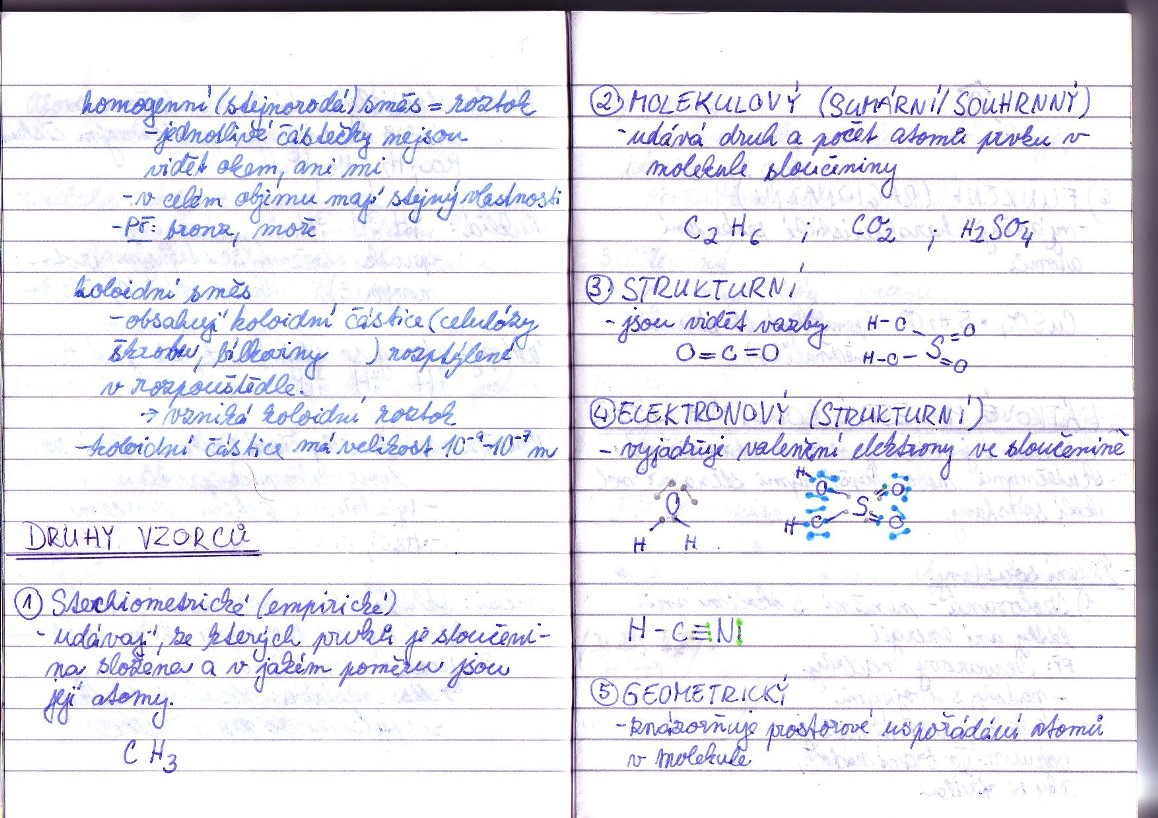 homogenní (stejnorodá) směs = roztok
-jednotlivé částečky nejsou
vidět okem, ani mi
-v celém objemu mají stejný vlastnosti
-Př: bronz, moře
koloidní směs
-obsahují koloidní částice (celulózy
škrobu, bílkoviny ) rozptýlené
v rozpouštědle.
→ vzniká koloidní roztok
-koloidní částice má velikost 10⁻⁹-10⁻⁷ m
DRUHY VZORCŮ
① Stechiometrické (empirické)
- udávají, ze kterých prvků je sloučeni-
na složena a v jakém poměru jsou
její atomy.
CH₃
② MOLEKULOVÝ (SUMÁRNÍ/SOUHRNNÝ)
-udává druh a počet atomů prvku v
molekule sloučeniny
C₂H₆ ; CO₂ ; H₂SO₄
③ STRUKTURNÍ
- jsou vidět vazby H-O
O=C=O H-O- S =O =O
④ ELEKTRONOVÝ (STRUKTURNÍ)
- vyjadřuje valenční elektrony ve sloučenině
H O O
O S
H H H O O
H-C≡N|
⑤ GEOMETRICKÝ
-znázorňuje prostorové uspořádání atomů
v molekule